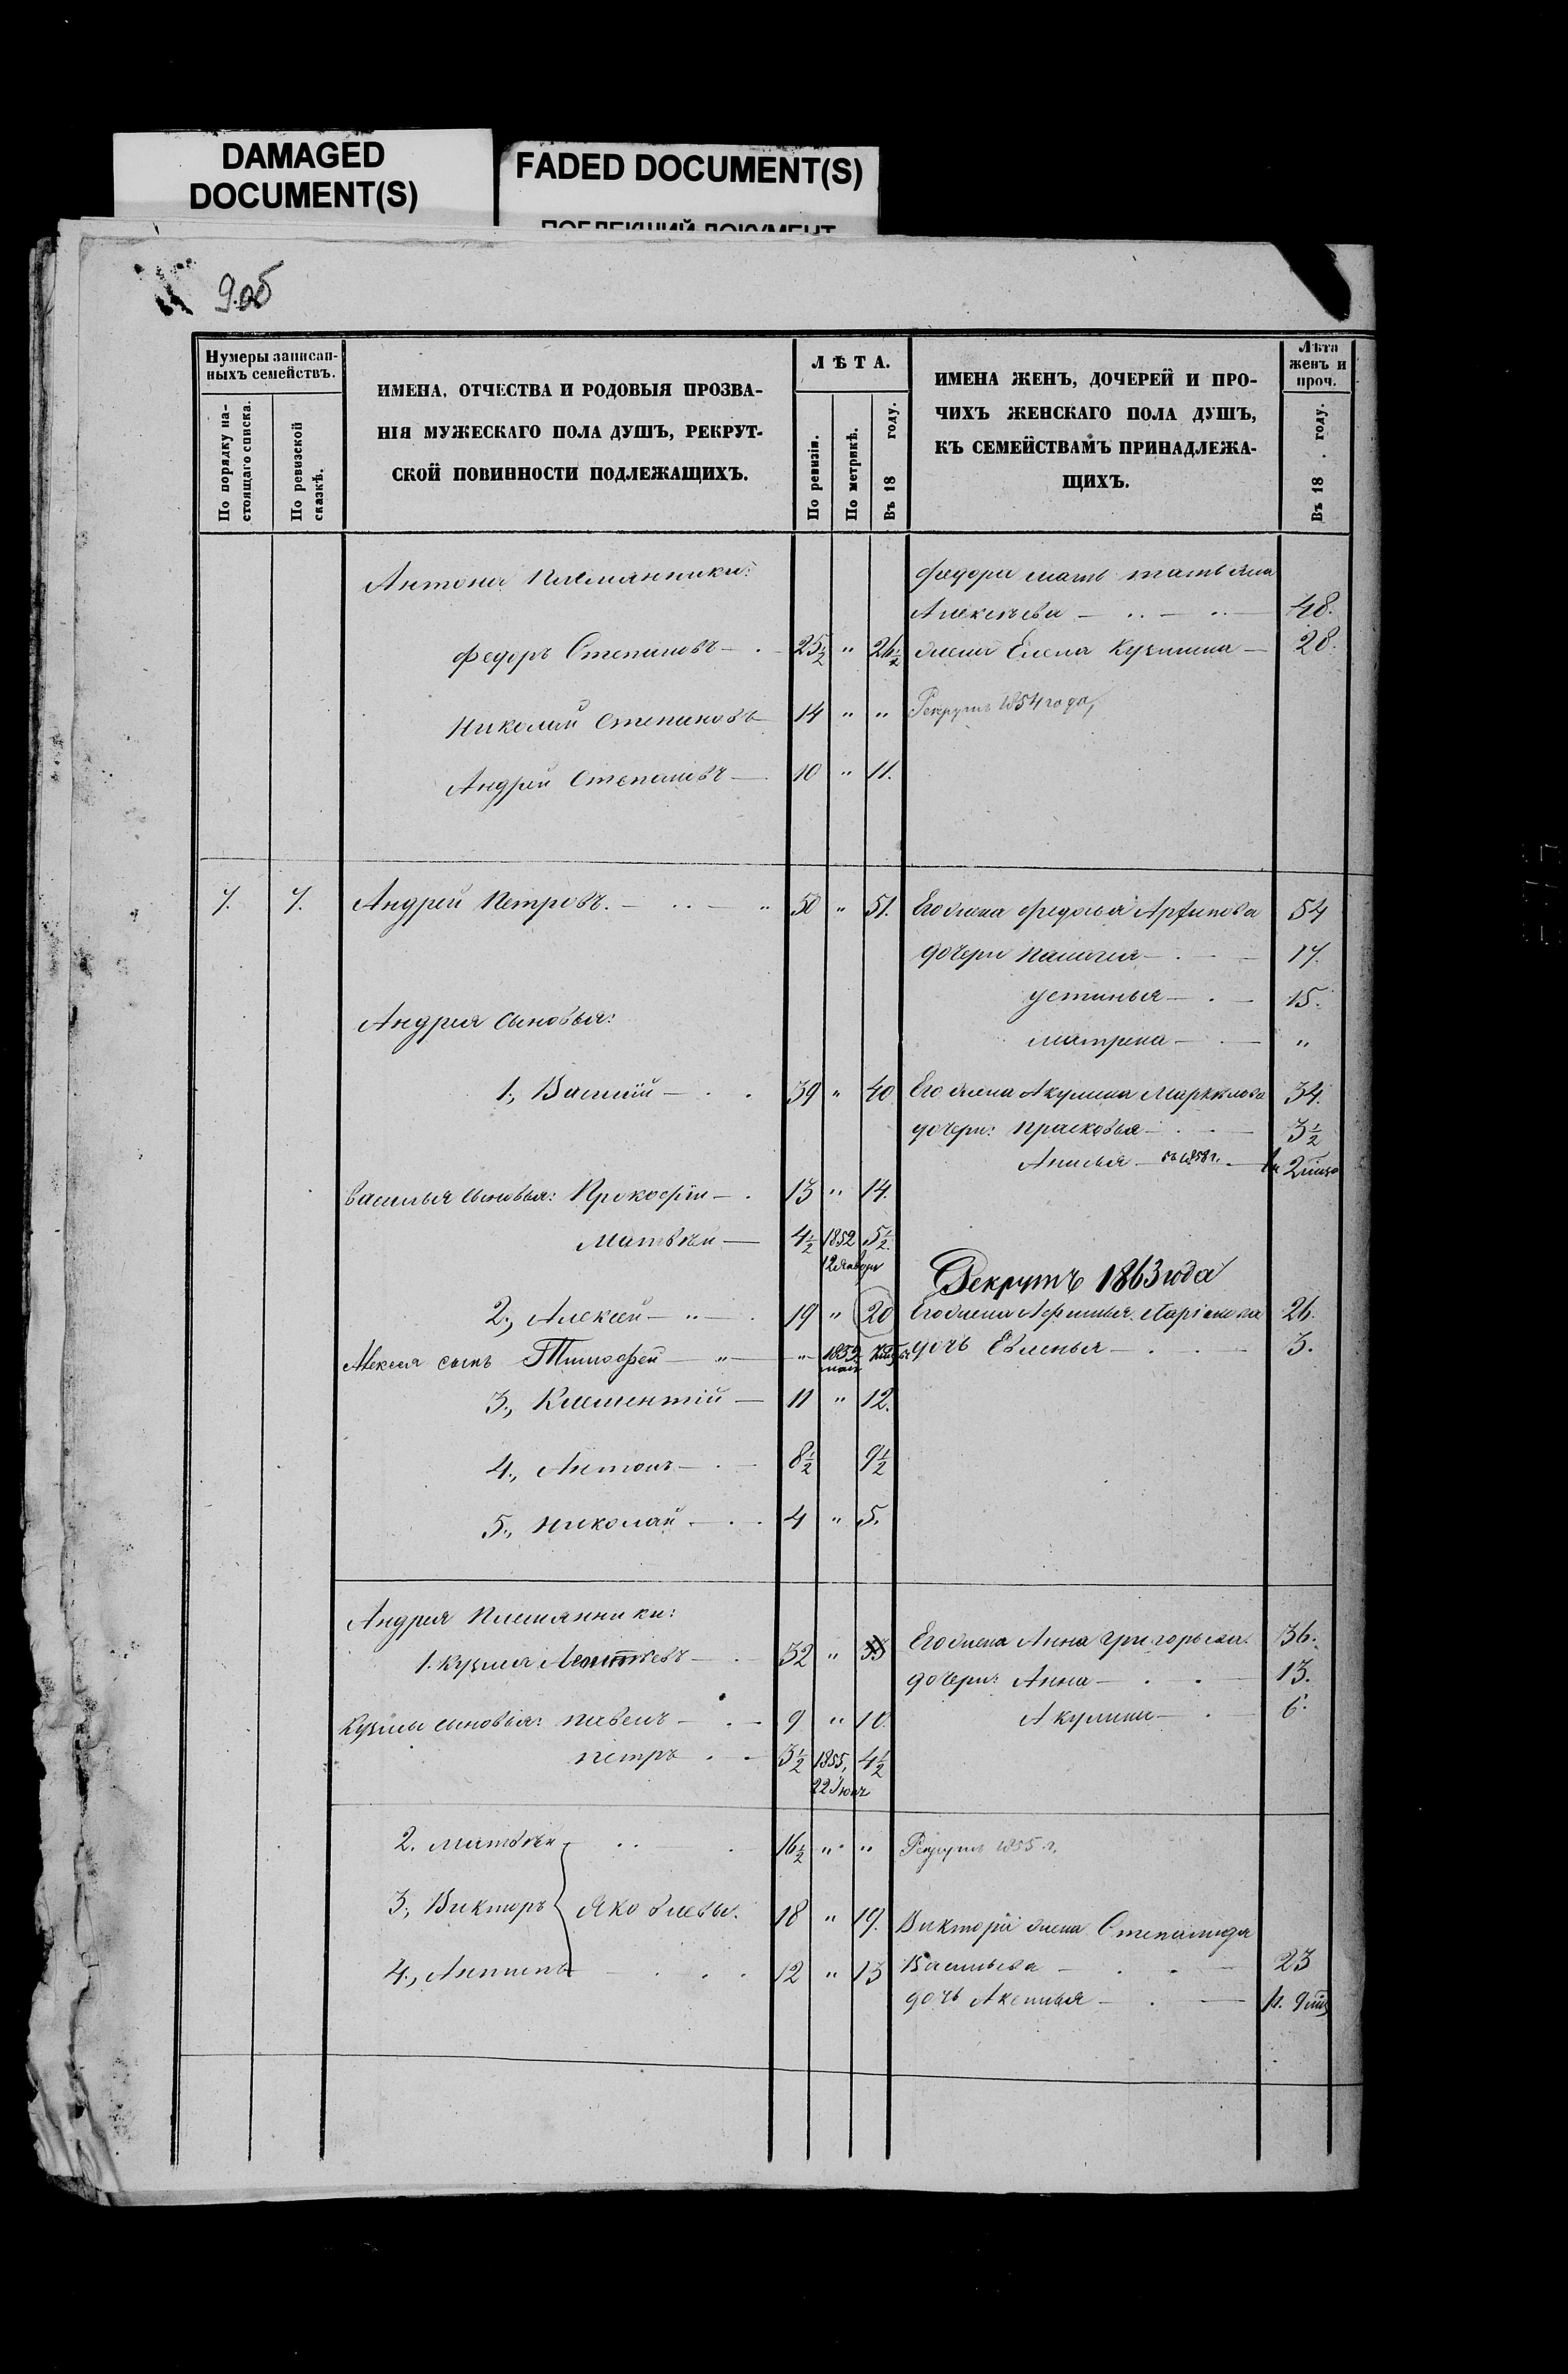 DAMAGED
DOCUMENT(S)
FADED DOCUMENT(S)
9.об
Нумеры записан-
ныхъ семействъ.
По порядку на-
стоящаго списка.
По ревизской
сказкѣ.
ИМЕНА, ОТЧЕСТВА И РОДОВЫЯ ПРОЗВА-
НІЯ МУЖЕСКАГО ПОЛА ДУШЪ, РЕКРУТ-
СКОЙ ПОВИННОСТИ ПОДЛЕЖАЩИХЪ.
ЛѢТА.
По ревизіи.
По метрикѣ.
Въ 18 году.
ИМЕНА ЖЕНЪ, ДОЧЕРЕЙ И ПРО-
ЧИХЪ ЖЕНСКАГО ПОЛА ДУШЪ,
КЪ СЕМЕЙСТВАМЪ ПРИНАДЛЕЖА-
ЩИХЪ.
Лѣта
женъ и
проч.
Въ 18 . году.
Антона племянники: Федора мать татьяна
Алексѣева 48.
Федоръ Степановъ 25½ " 26½ жена Елена Кузмина 28.
Николай Степановъ 14 " " Рекрутъ 1854 года,
Андрей Степановъ 10 " 11.
7. 7. Андрей Петровъ. 50 " 51. Его жена Федосья Архипова 54
дочери Палагея 17.
устинья 15.
Андрея сыновья:
матрена "
1., Василій 39 " 40 Его жена Акулина 34.
дочери: Прасковья 3½
Анисья
Василья сыновья: Прокофій 13 " 14.
Матвѣй 4½ 1852 5½
12 января
Рекрутъ 1863 года
2., Алексѣй 19 " 20 Его жена 26.
Алексея сынъ Тимофей " дочь Евгенья 3.
3., Клементій 11 " 12.
4., Антонъ 8½ 9½
5., Николай 4 " 5.
Андрея Племянники:
1. Кузма 32 " 33 Его жена Анна Григорьева 36.
дочери: Анна 13.
Кузмы сыновья: павелъ 9 " 10. Акулина 6.
петръ 3½ 1855, 4½
22 Іюня
2. Матвѣй 16½ " " Рекрутъ 1855 г.
3., Викторъ Яковлевы. 18 " 19. Виктора жена Степанида
4., Антипъ 12 " 13 Васильева 23
дочь Аксинья